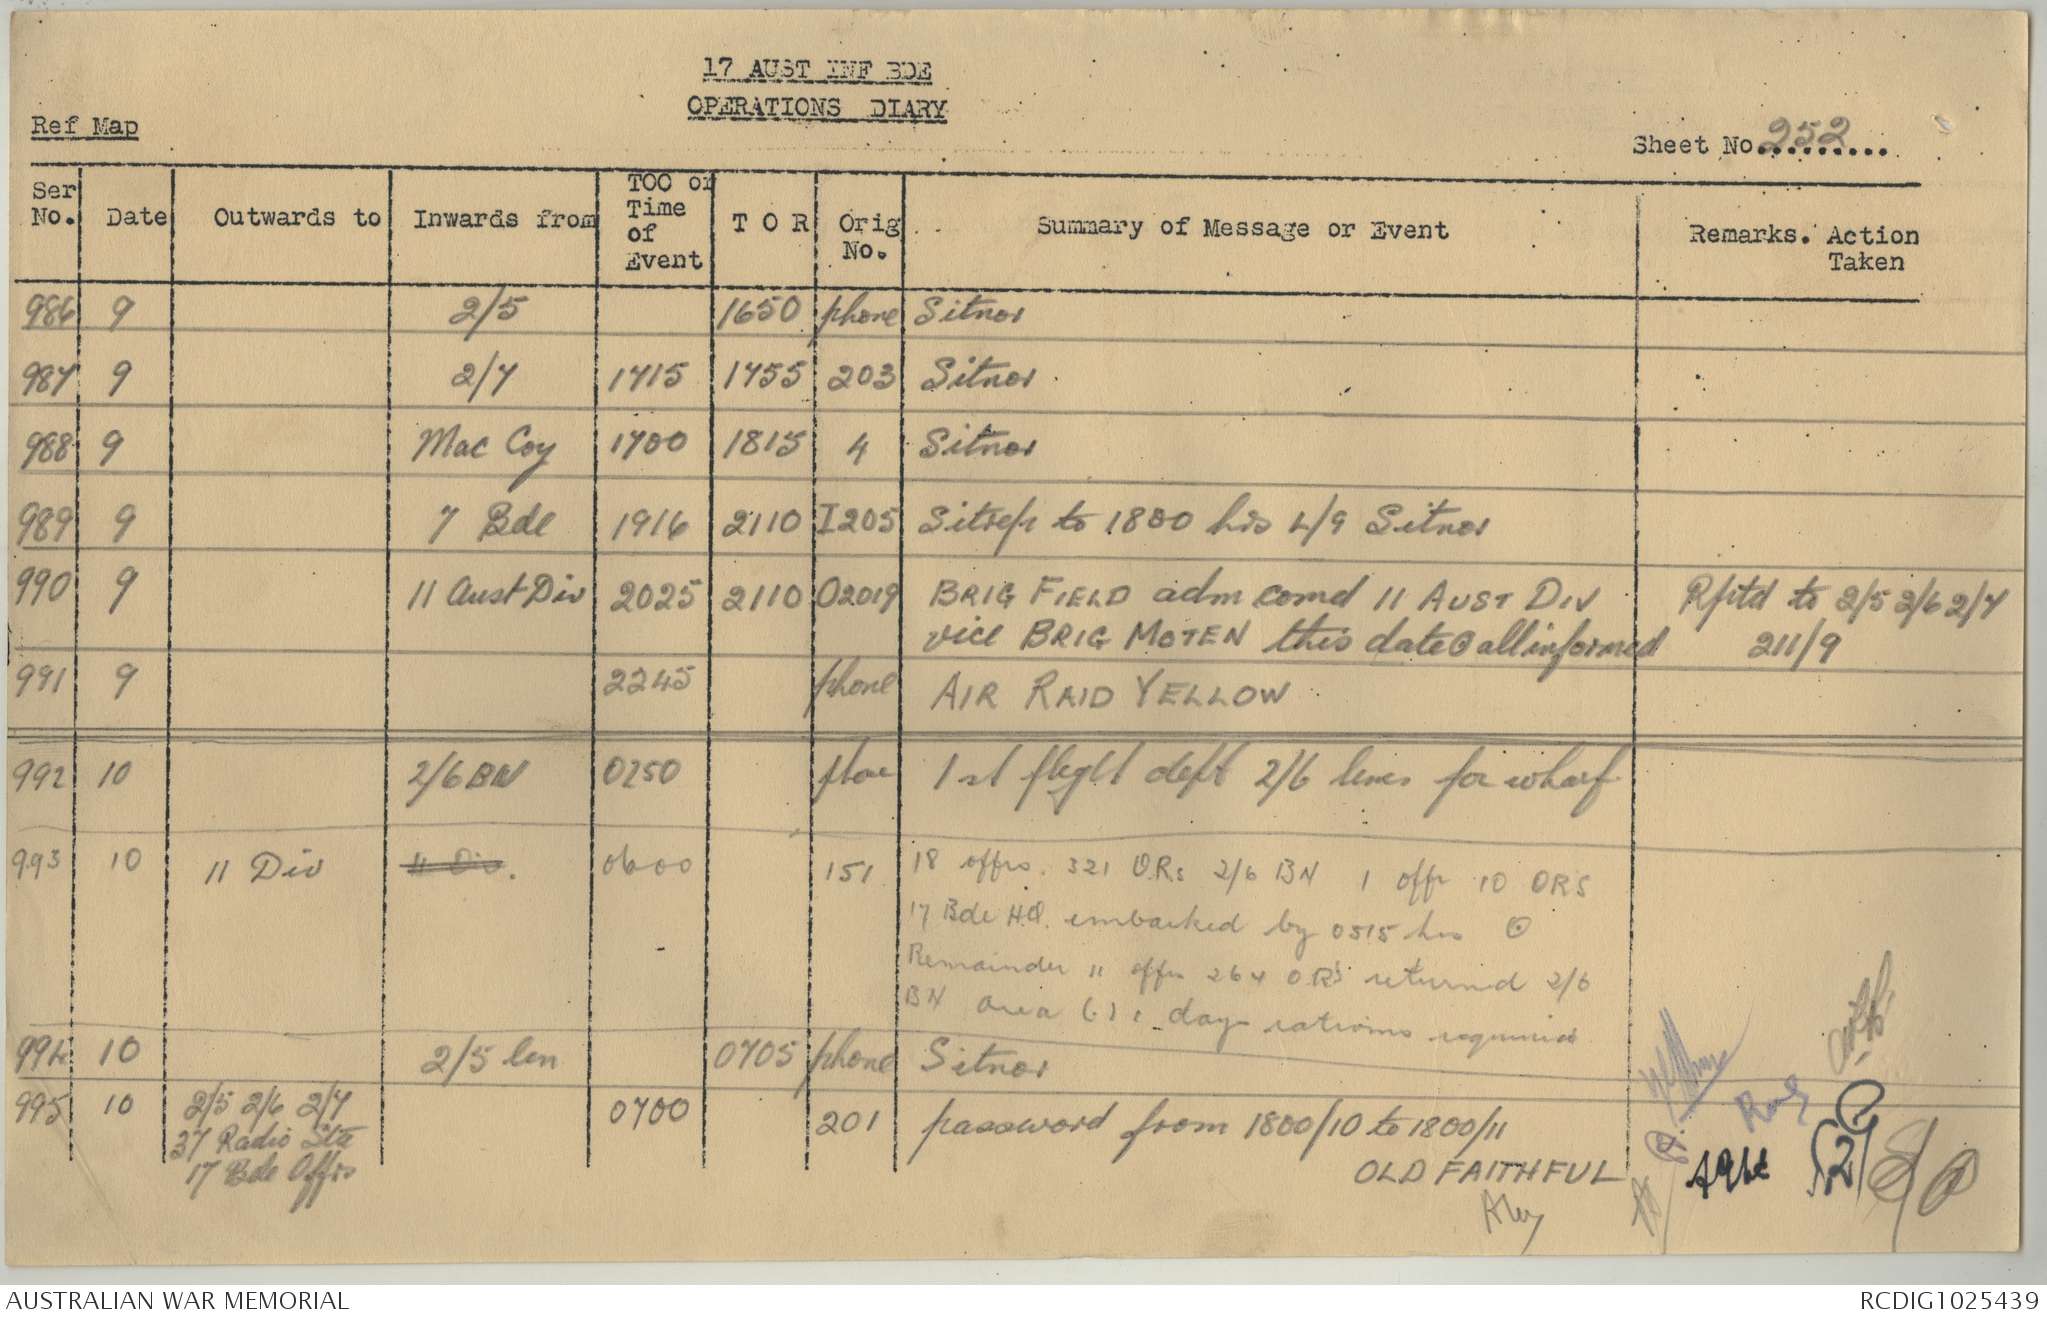 17 AUST INF BDE
OPERATIONS DIARY
Ref Map
Sheet No. 252
Ser No. Date Outwards to Inwards from TOO or Time of Event T O R Orig No. Summary of Message or Event Remarks. Action Taken
986 9 2/5 1650 phone Sitnor
987 9 2/7 1715 1755 203 Sitnor
988 9 Mac Coy 1700 1815 4 Sitnor
989 9 7 Bde 1916 2110 I205 Sitrep to 1800 hrs 4/9 Sitnor
990 9 11 Aust Div 2025 2110 O2019 BRIG FIELD adm comd 11 AUST DIV Rptd to 2/5 2/6 2/7
vice BRIG MOTEN this date all informed 211/9
991 9 2245 phone AIR RAID YELLOW
992 10 2/6 BN 0250 phone 1st flight dept 2/6 lines for wharf
993 10 11 Div 11 Div. 0600 151 18 offrs. 321 O.Rs 2/6 BN 1 offr 10 ORS
17 Bde H.Q. embarked by 0515 hrs
Remainder 11 offrs 264 O.R's returned 2/6
BN area days rations required
994 10 2/5 Bn 0705 phone Sitnor
995 10 2/5 2/6 2/7 0700 201 password from 1800/10 to 1800/11
37 Radio Stn
17 Bde Offrs
OLD FAITHFUL
AUSTRALIAN WAR MEMORIAL
RCDIG1025439